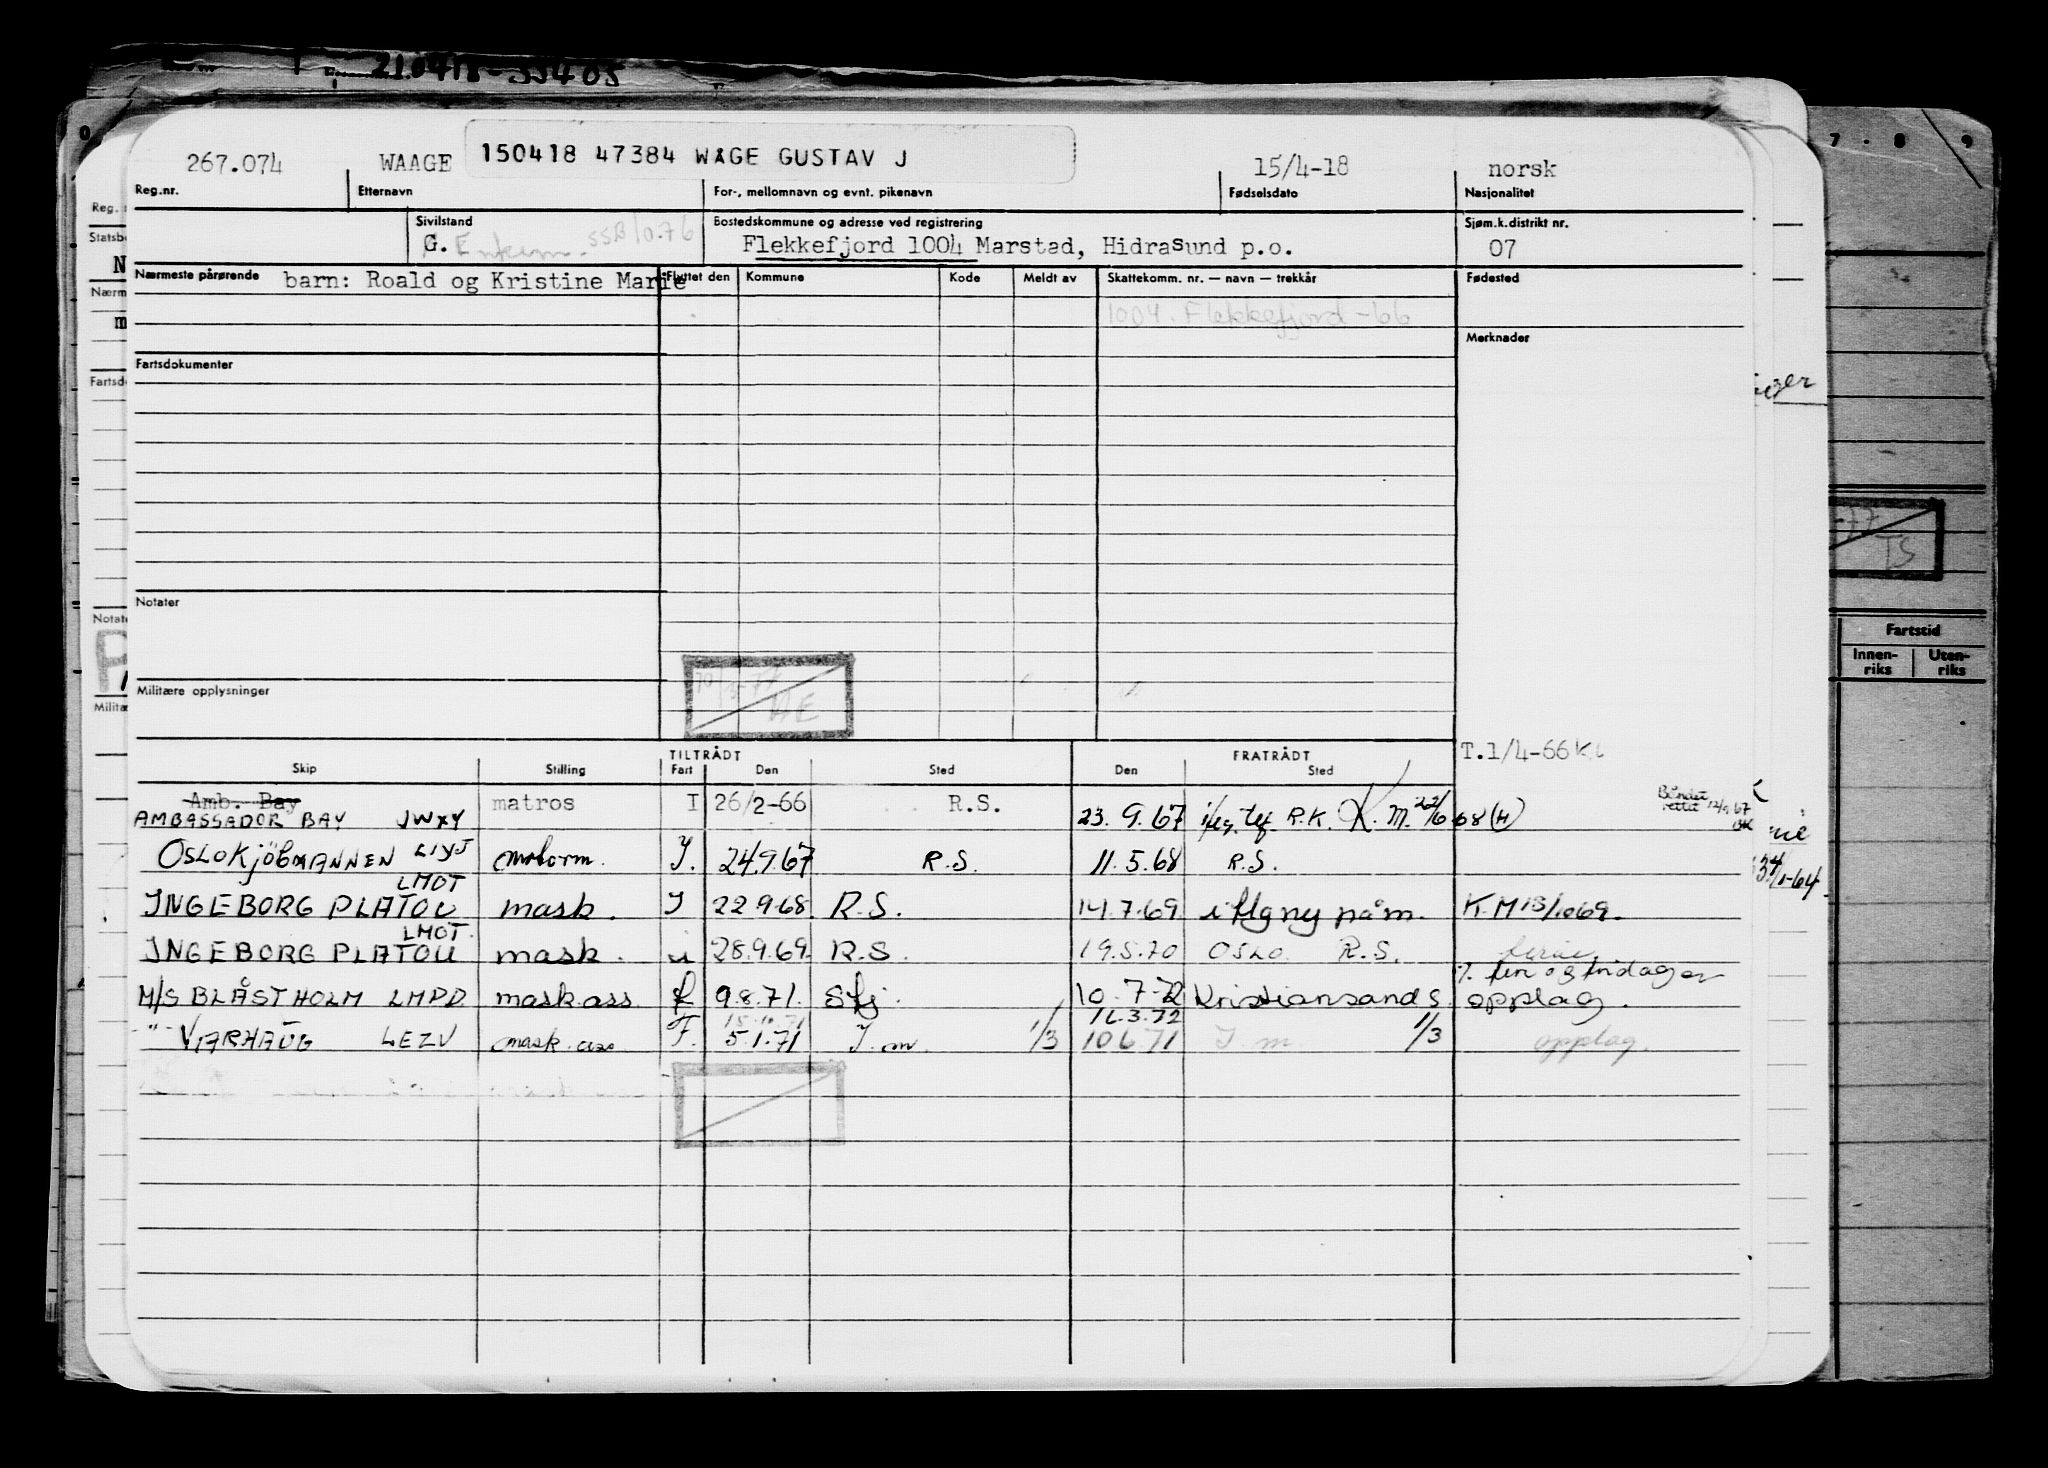 210418-35405
150418 47384 WÅGE GUSTAV J
267.074 WAAGE 15/4-18 norsk
Reg.nr. Etternavn For-, mellomnavn og evnt. pikenavn Fødselsdato Nasjonalitet
Sivilstand Bostedskommune og adresse ved registrering Sjøm.k.distrikt nr.
G. Enkem. SSB/0.76 Flekkefjord 1004 Marstad, Hidrasund p.o. 07
Nærmeste pårørende barn: Roald og Kristine Marie Flyttet den Kommune Kode Meldt av Skattekomm. nr. — navn — trekkår Fødested
1004. Flekkefjord -66
Merknader
Fartsdokumenter
Notater
Militære opplysninger
TILTRÅDT FRATRÅDT T.1/4-66
Skip Stilling Fart Den Sted Den Sted
Amb. Bay matros I 26/2-66 R.S.
AMBASSADOR BAY JWXY 23.9.67 R.K. K.M. 22/6 68 (H)
OSLOKJØBMANNEN LIYJ motorm. I. 24.9.67 R.S. 11.5.68 R.S.
LMOT
INGEBORG PLATOU mask. I 22.9.68 R.S. 14.7.69 i flg ny påm. K.M 13/10 69.
LMOT.
INGEBORG PLATOU mask. i 28.9.69 R.S. 19.5.70 OSLO R.S. ferie
M/S BLÅSTHOLM LMPD mask.ass f 9.8.71. Sfj. 10.7-72 Kristiansand S. opplag.
15.10.71 16.3.72
-"- VARHAUG LEZV mask.ass F. 5.1.71 I.m 1/3 10.6.71 I.m 1/3 opplag.
Fartstid
Innen-riks Uten-riks